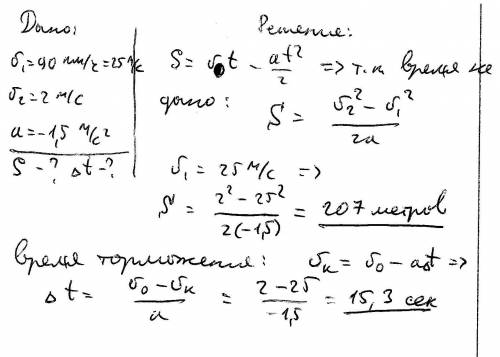 Дано:
υ₁=90 км/ч=25 м/с
υ₂=2 м/с
a=-1,5 м/с²
S-? Δt-?
Решение:
S = υ₀t - at²/2 => т.к время не
дано: S = (υ₂² - υ₁²)/2a
υ₁ = 25 м/с =>
S = (2² - 25²)/2(-1,5) = 207 метров
Время торможения: υₖ = υ₀ - aΔt =>
Δt = (υ₀ - υₖ)/a = (2 - 25)/-1,5 = 15,3 сек